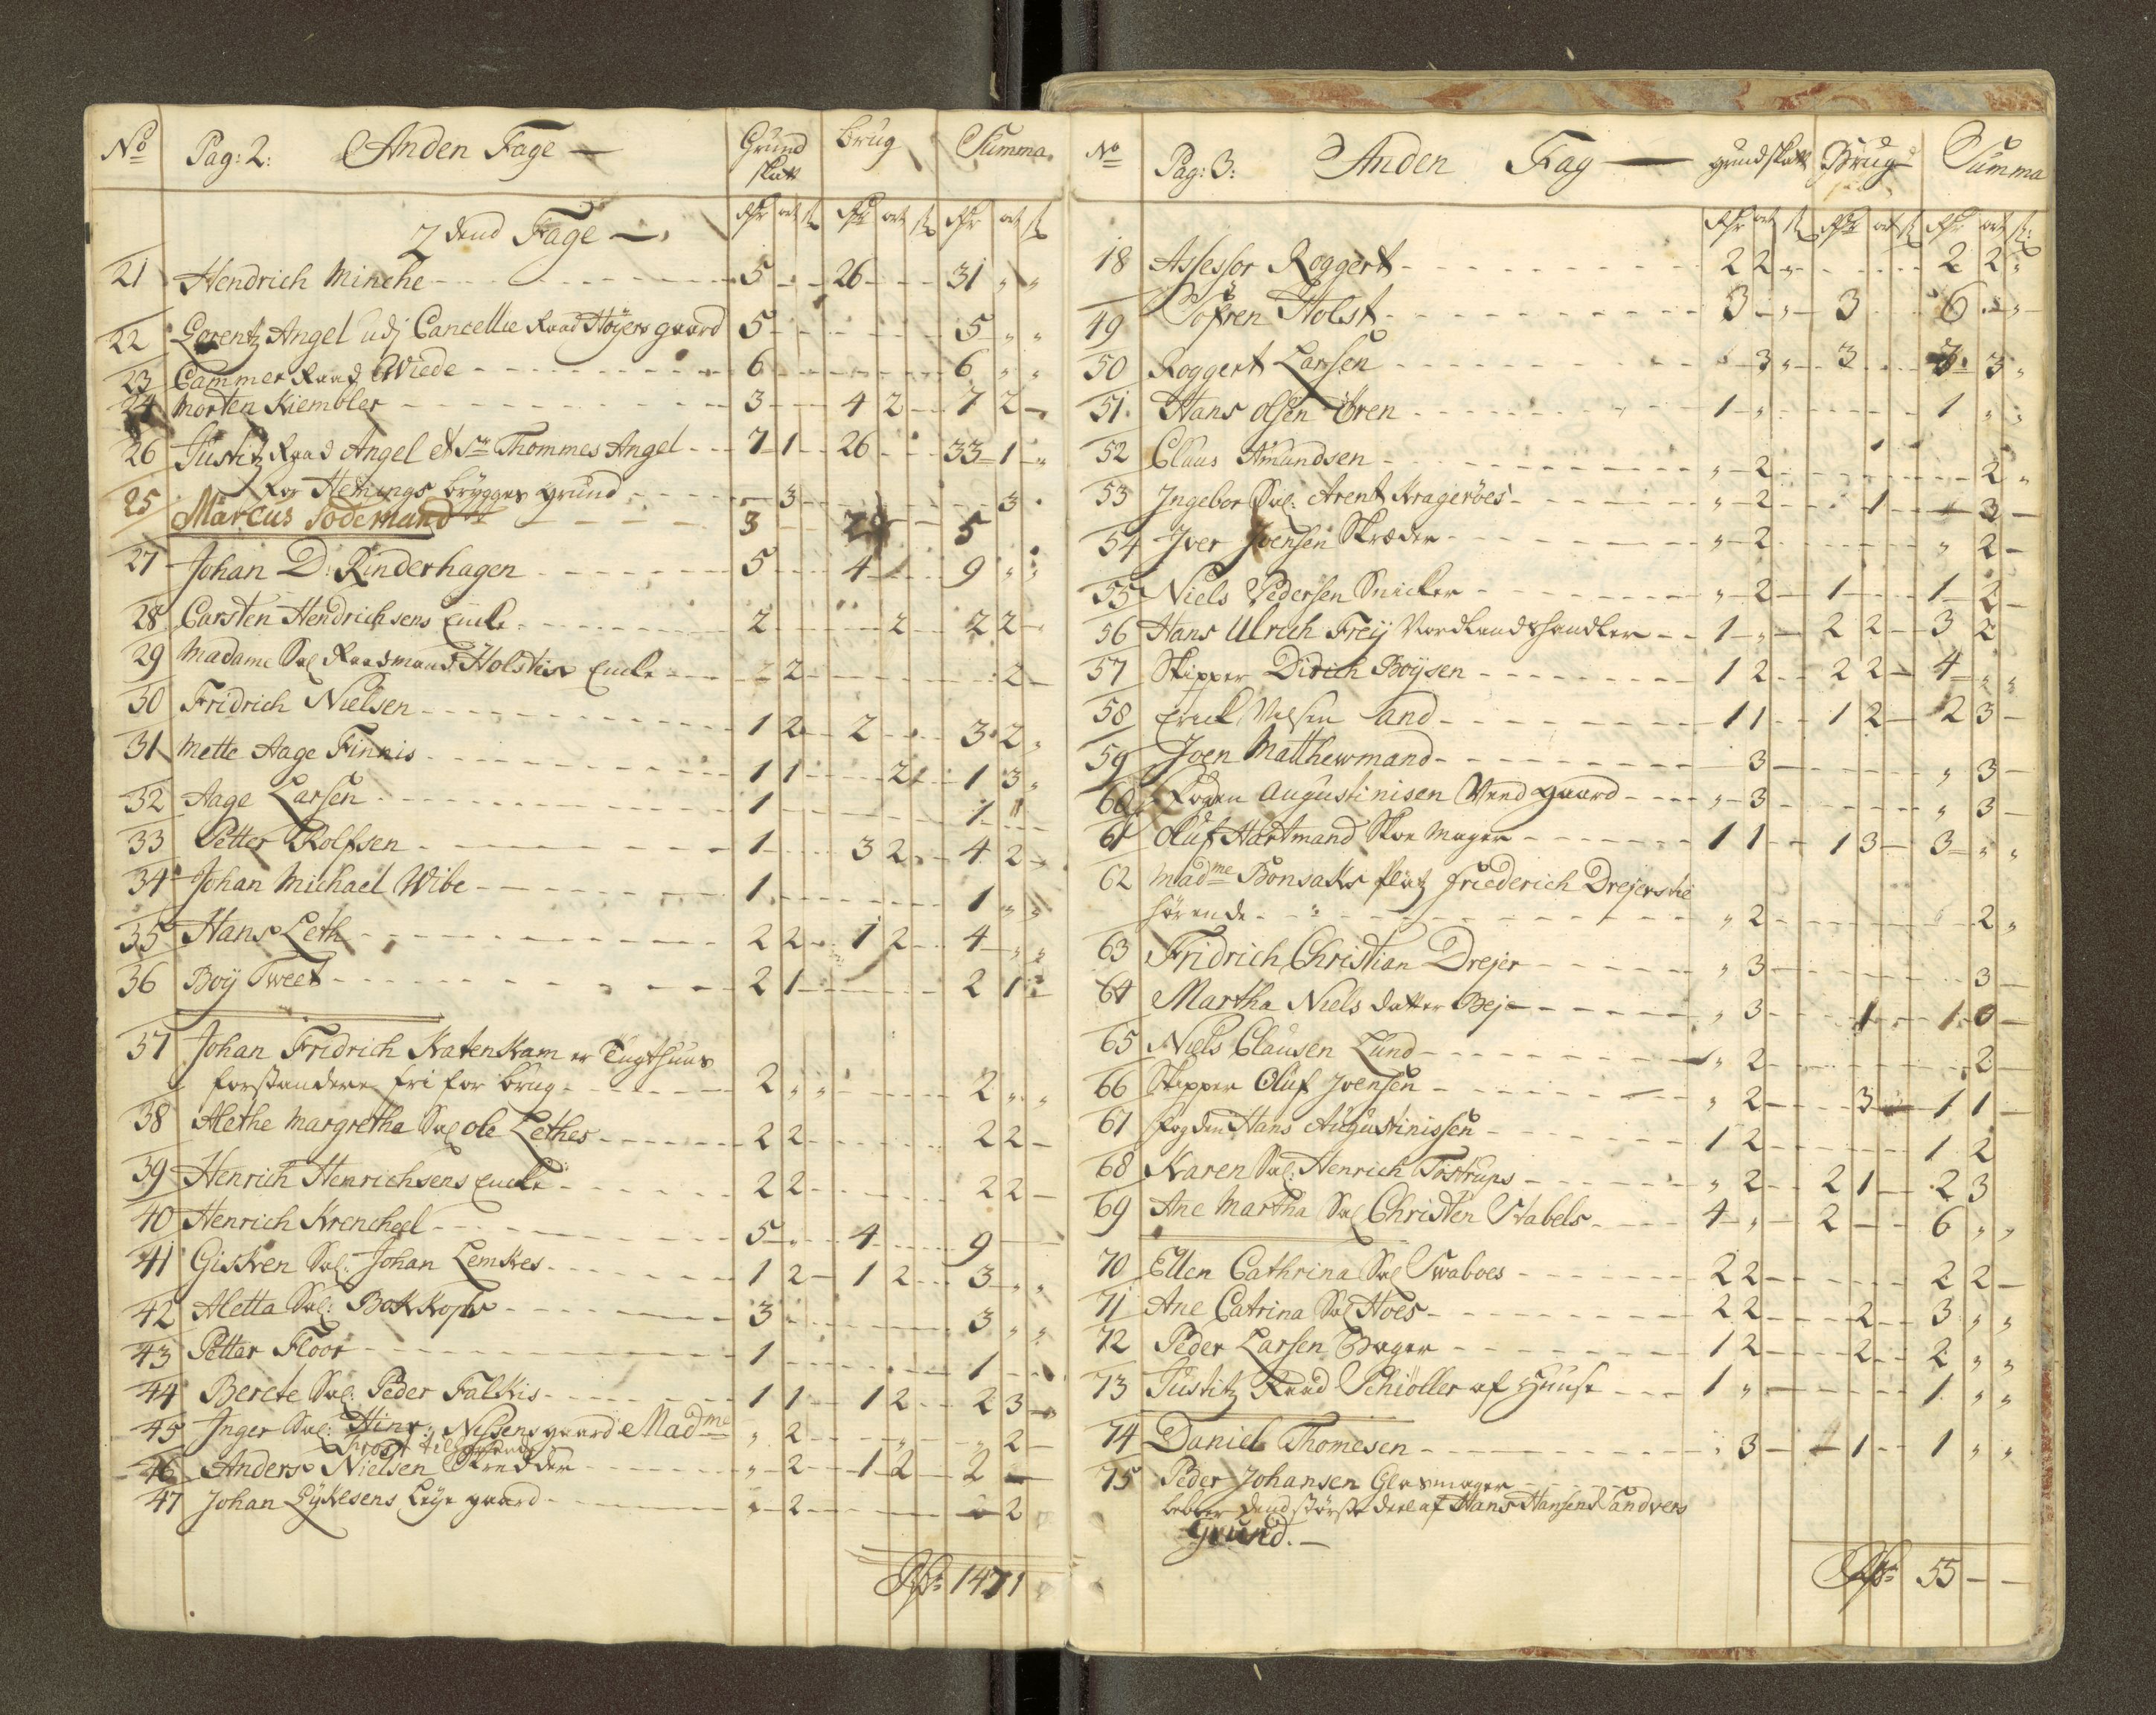 No Pag: 2: Anden Fage — Grund skatt Brug Summa
2 dend Fage — Rdr ort s Rdr ort s Rdr ort s
21 Hendrich Minche 5 - - 26 - - 31 " "
22 Lorentz Angel udj Cancellie Raad Høyers gaard 5 - - 5 " "
23 Cammer Raad Wiede 6 - - 6 " "
24 Morten Kiembler 3 - - 4 2 - 7 2 -
26 Justitz Raad Angel et Sr Thommes Angel 7 1 - 26 - - 33 1 "
for Hemings brygges grund - 3 - - 3 "
25 Marcus Sodemand 3 - 2 - 5
27 Johan D: Rinderhagen 5 - - 4 - - 9 " "
28 Carsten Hendrichsens Encke 2 - - - 2 - 2 2 -
29 Madame Sal Raadmand Holstes Encke - 2 - - 2 -
30 Fridrich Nielsen 1 2 - 2 - - 3 2 "
31 Mette Aage Finnis 1 1 - - 2 - 1 3 "
32 Aage Larsen 1 - - 1 "
33 Petter Rolfsen 1 - - 3 2 - 4 2 -
34 Johan Michael Wibe 1 - - 1 " "
35 Hans Leth 2 2 - 1 2 - 4 " "
36 Boÿ Tweet 2 1 - - 2 1 -
37 Johan Fridrich Katenkam er Tugthuus
forstandere fri for brug 2 " " - 2 " "
38 Alethe Margrethe Sal Ole Lethes 2 2 - - 2 2 -
39 Henrich Henrichsens Encke 2 2 - - 2 2 -
40 Henrich Krenchel 5 " - 4 - - 9 - -
41 Gisken Sal: Johan Lemkes 1 2 - 1 2 - 3 " "
42 Aletta Sal: Bokkops 3 - - 3 " "
43 Petter Floor 1 - - 1 - -
44 Berete Sal: Peder Falkis 1 1 - 1 2 - 2 3 -
45 Inger Sal: Hinr: Nissens gaard Madme " 2 - - " 2 -
Frost tilhørende
46 Anders Nielsen Skredder " 2 - 1 2 - 2 -
47 Johan Lÿkesens Leÿe gaard " 2 - - " 2
Rdr 147 1
No Pag: 3: Anden Fag — grundskatt Brug Summa
Rdr ort s Rdr ort s Rdr ort s:
18 Assessor Roggert 2 2 " - 2 2 "
49 Søfren Holst 3 - " - 3 - - 6 - " -
50 Roggert Larsen " 3 " - 3 - - 3 3 "
51 Hans Olsen Ören 1 " - - 1 " "
52 Claus Amundsen " 2 - - 2 "
53 Ingebor Sal: Arent Kragerøes " 2 - - 1 - - 3 -
54 Iver Joensen Skræder " 2 - - " 2 -
55 Niels Pedersen Snicker " 2 - 1 - - 1 2 -
56 Hans Ulrich Freÿ Nordlandshandler 1 " - 2 2 - 3 2
57 Skipper Dirich Boÿsen 1 2 - 2 2 - 4 " "
58 Erick Nilsen Sand 1 1 - 1 2 - 2 3 -
59 Joen Matthewmand - 3 - - " 3 -
60 Augustinisen gaard " 3 - - " 3 -
61 Oluf Hartmand Skoe Mager 1 1 - 1 3 - 3 " "
62 Madme Bonsaks platz Friederich Drejers tie
hørende " 2 - - " 2 "
63 Fridrich Christian Drejer " 3 - - 3 -
64 Martha Niels datter Beje " 3 - - 1 - 1 0 -
65 Niels Clausen Lund " 2 - - 2 -
66 Skipper Oluf Joensen " 2 - - 3 - 1 1 -
67 Fogden Hans Augustinissen 1 2 - - 1 2
68 Karen Sal: Henrich Tostrups " 2 - 2 1 - 2 3
69 Ane Martha Sal Christen Stabels 4 " - 2 - - 6 " "
70 Ellen Cathrina Sal Swaboes 2 2 - - 2 2 -
71 Ane Catrina Sal Hoes 2 2 - - 2 - 3 " "
72 Peder Larsen Bager 1 2 - - 2 - 2 " "
73 Justitz Raad Schiøller af Huuse 1 " - - 1 " "
74 Daniel Thomesen " 3 - - 1 - 1 " "
75 Peder Johansen Glasmager
beboer dend største deel af Hans Hansens Sandvers
Grund. —
Rdr 55 - -